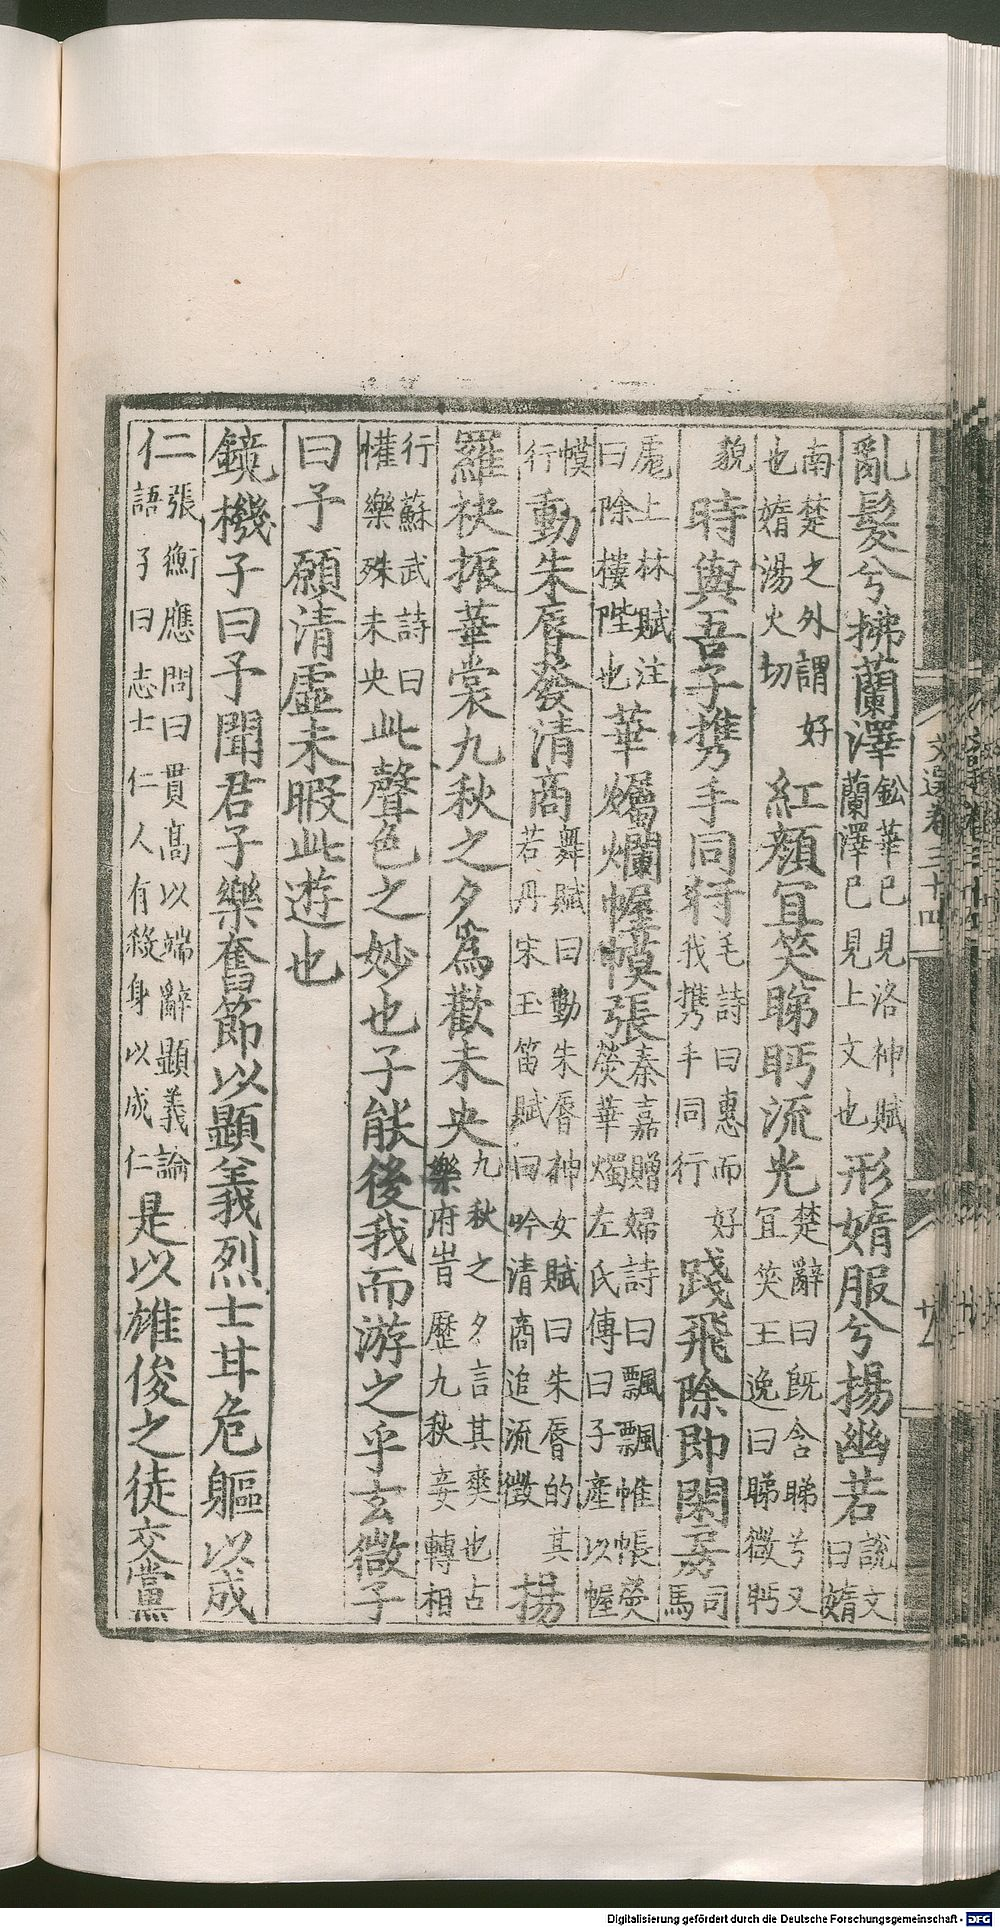 文選卷三十四
亂髮兮拂蘭澤鈆華已見洛神賦蘭澤已見上文也形媠服兮揚幽若說文曰媠
南楚之外謂好也媠湯火切紅顏宜笑睇眄流光楚辭曰旣含睇兮又宜笑王逸曰睇微眄
貌時與吾子攜手同行毛詩曰惠而好我攜手同行踐飛除即閑房司馬
彪上林賦注曰除樓陛也華爥爛幄幙張秦嘉贈婦詩曰飄飄帷帳熒熒華燭左氏傳曰子產以幄
幙行動朱脣發清商舞賦曰動朱脣神女賦曰朱脣的其若丹宋玉笛賦曰吟清商追流徵揚
羅袂振華裳九秋之夕爲歡未央九秋之夕言其爽也古樂府旹歷九秋妾轉相
行蘇武詩曰懽樂殊未央此聲色之妙也子能後我而游之乎玄微子
曰予願清虛未暇此遊也
鏡機子曰予聞君子樂奮節以顯義烈士甘危軀以成
仁張衡應問曰貫高以端辭顯義論語子曰志士仁人有殺身以成仁是以雄俊之徒交黨
Digitalisierung gefördert durch die Deutsche Forschungsgemeinschaft - DFG